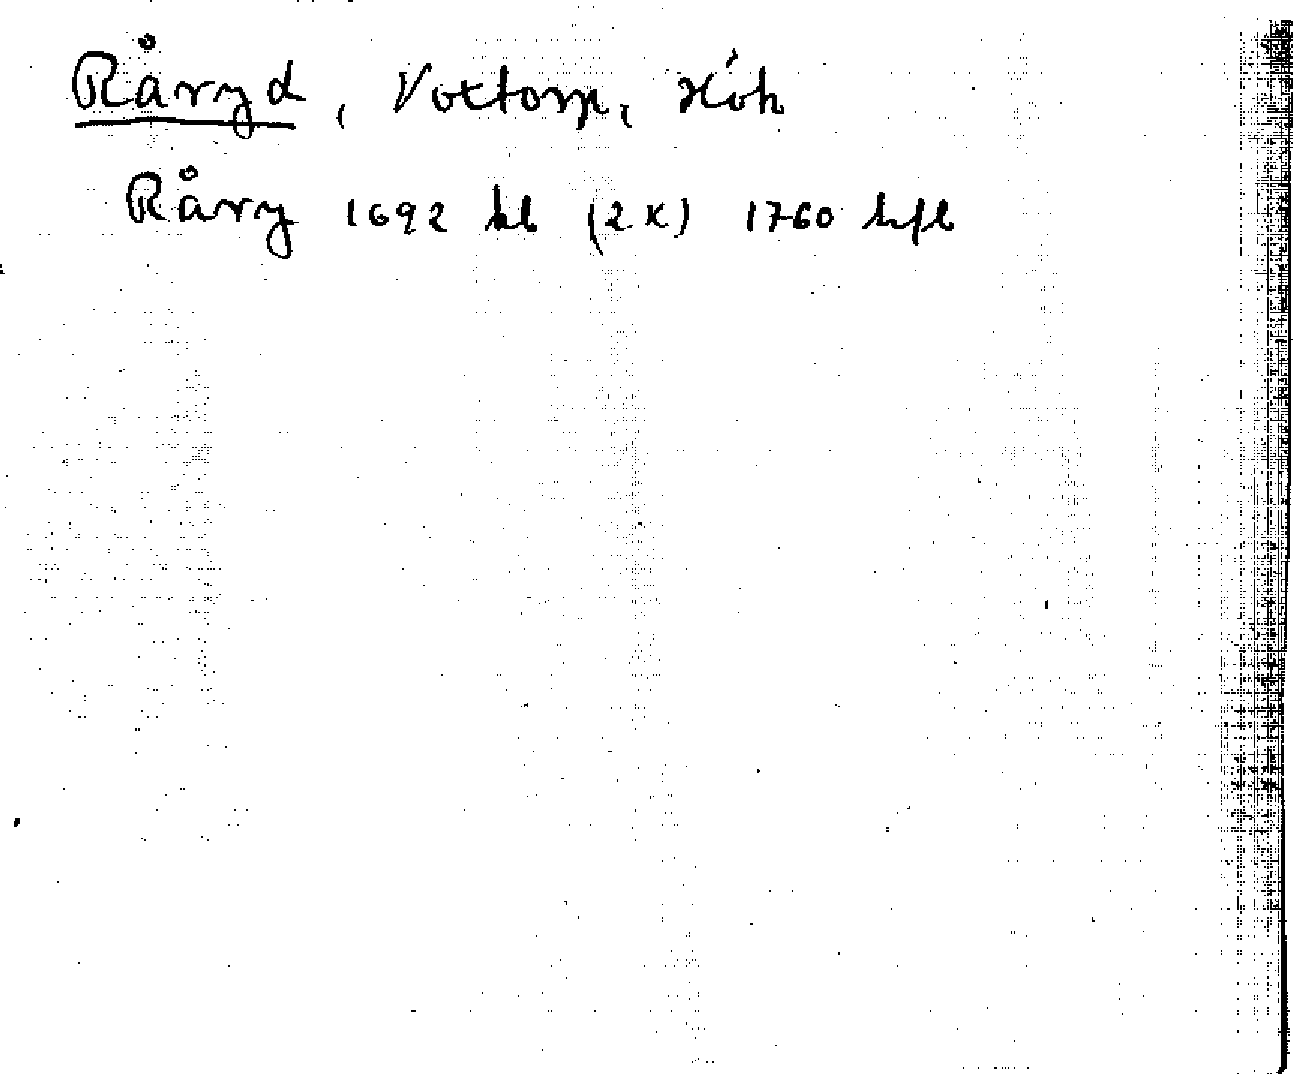 Råryd, Voxtorp,
Råry 1692 kb (2x) 1760 hfl